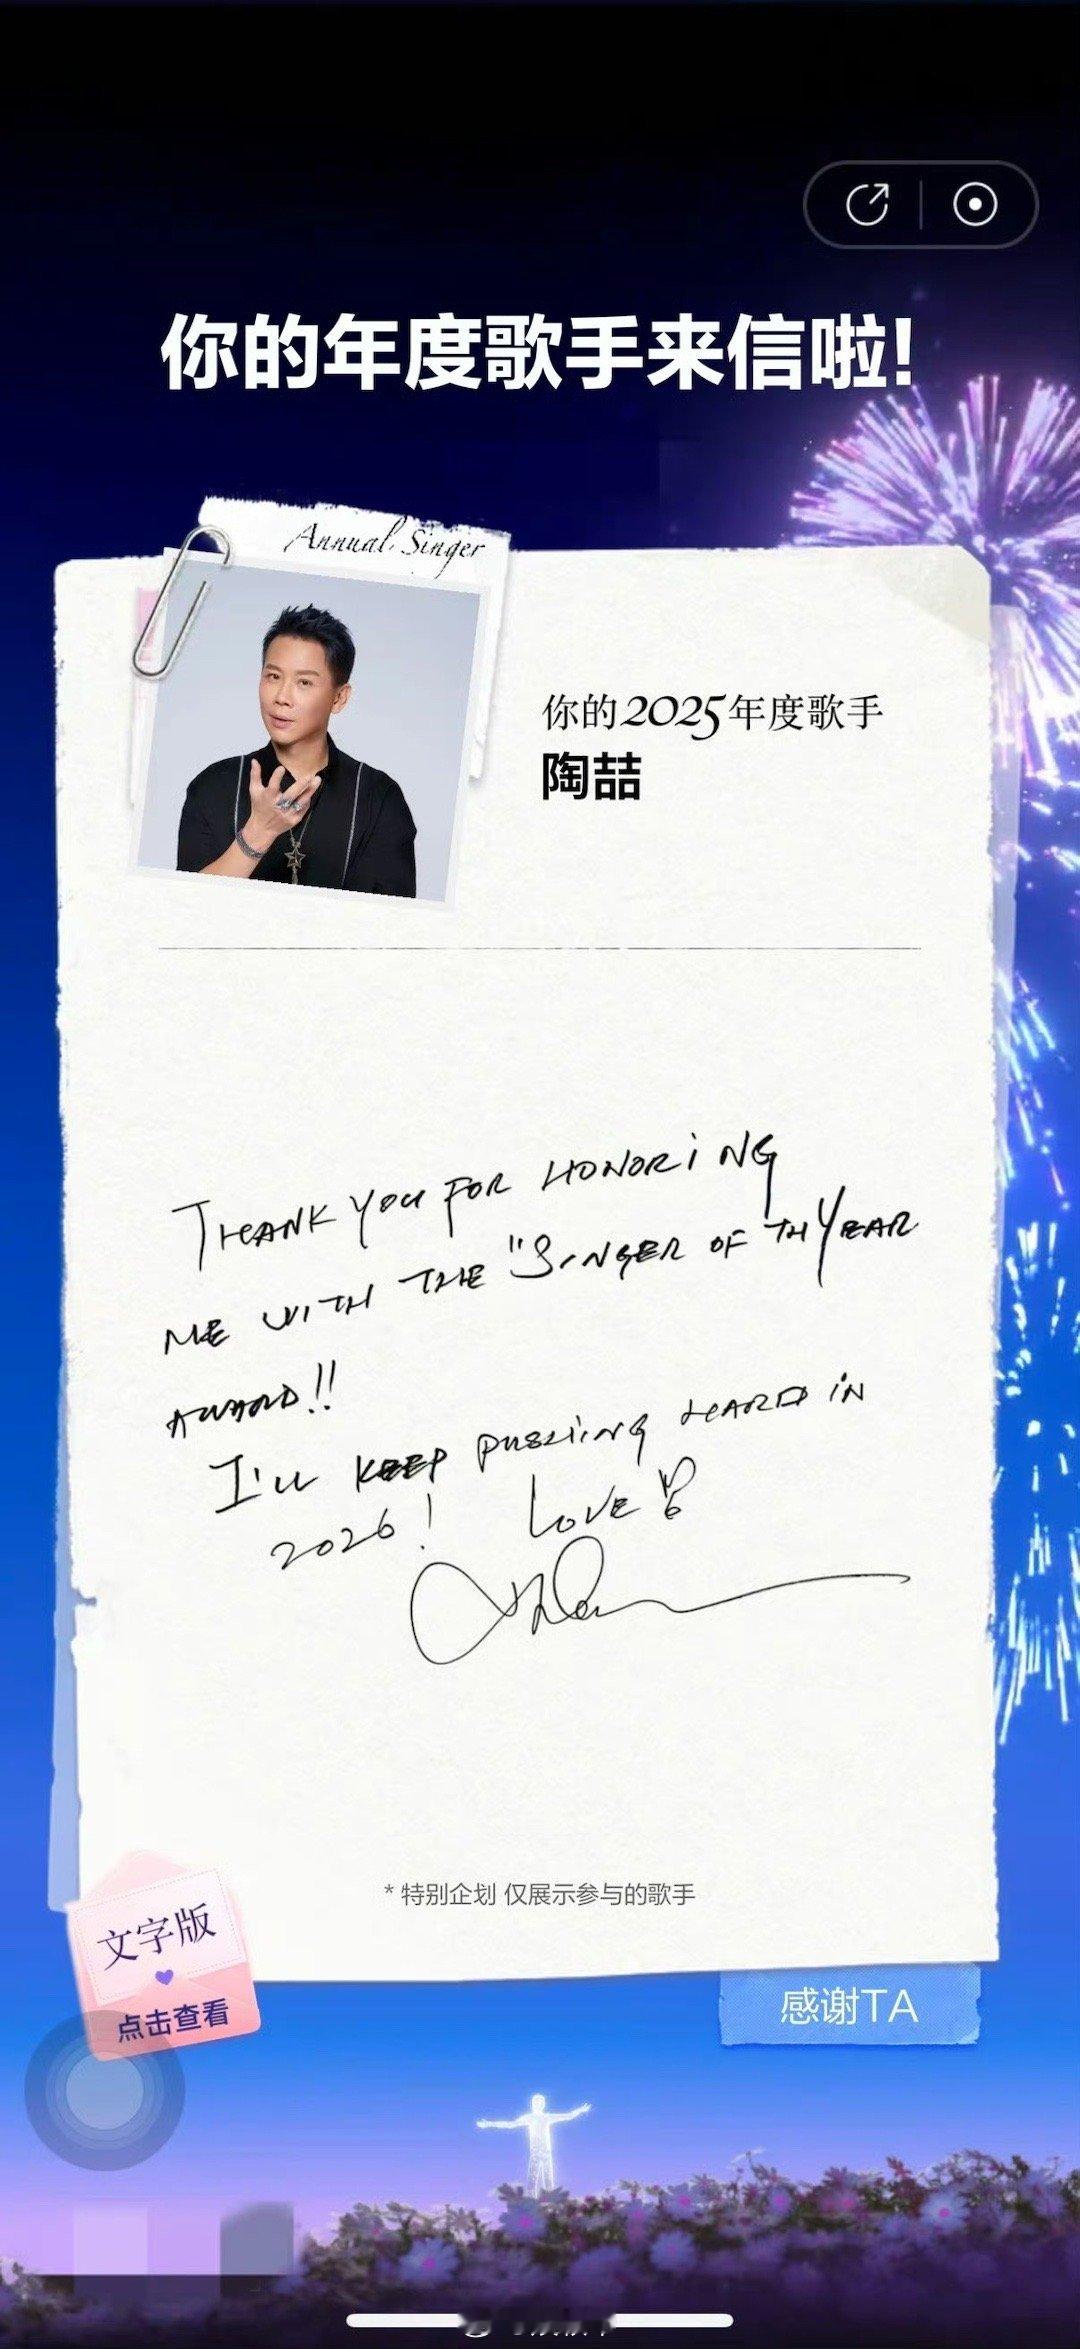 你的年度歌手来信啦!
Annual Singer
你的2025年度歌手
陶喆
THANK YOU FOR HONORING
ME WITH THE "SINGER OF TH YEAR
AWARD!!
I'LL KEEP PUSHING HARD IN
2026! LOVE
* 特别企划 仅展示参与的歌手
文字版
点击查看
感谢TA